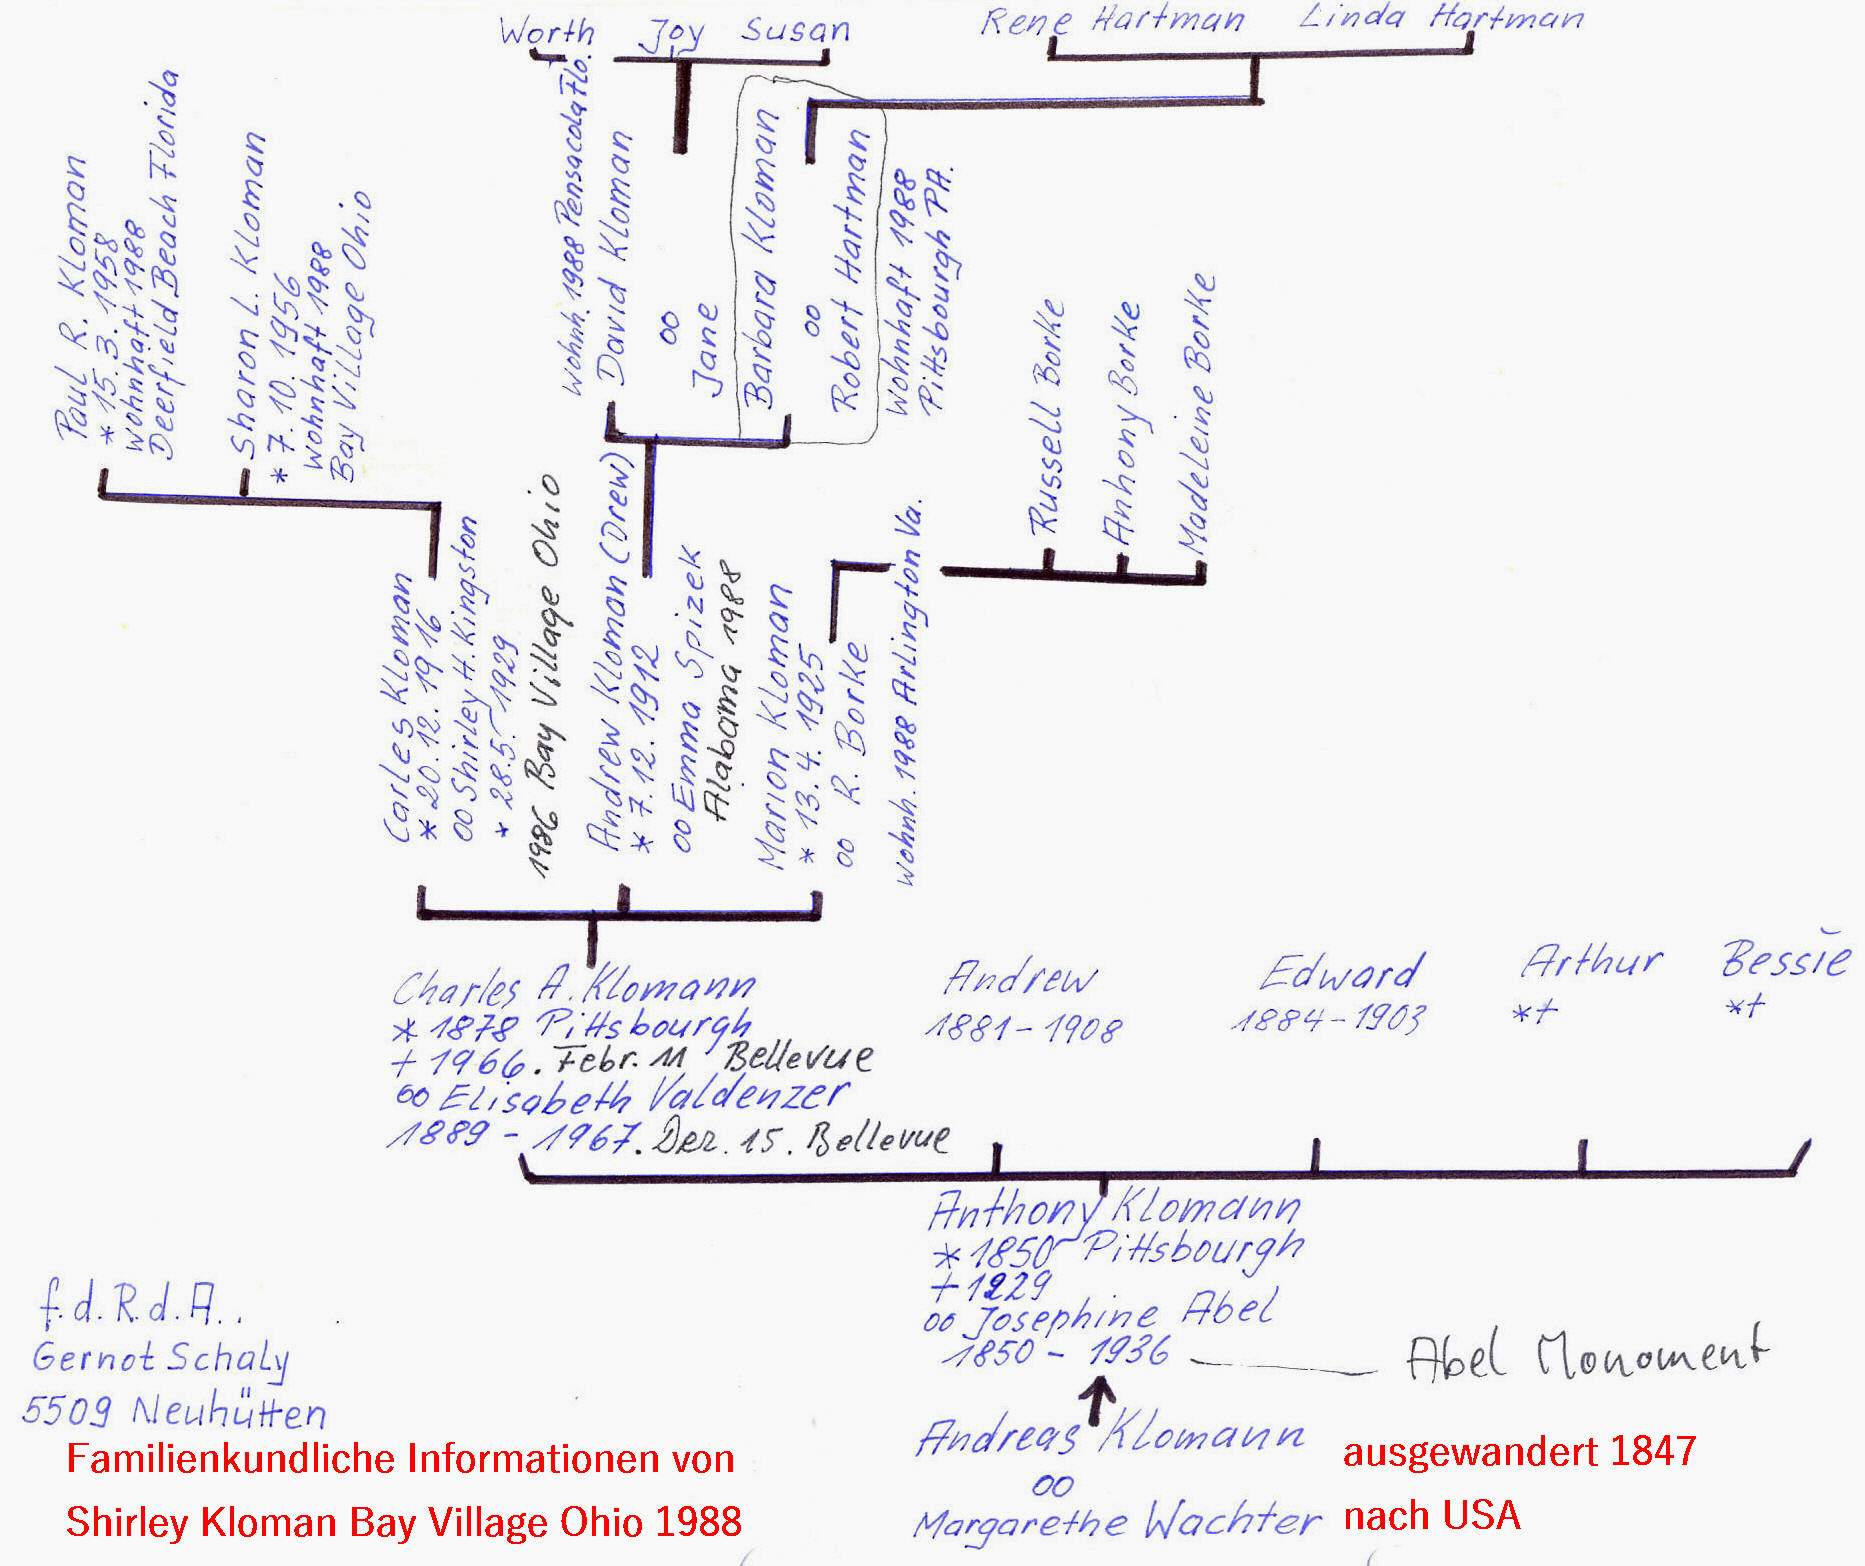 Worth Joy Susan
Rene Hartman Linda Hartman
Paul R. Kloman
* 15. 3. 1958
wohnhaft 1988
Deerfield Beach Florida
Sharon L. Kloman
* 7. 10. 1956
wohnhaft 1988
Bay Village Ohio
wohnh. 1988 Pensacola Flo.
David Kloman
oo
Jane
Barbara Kloman
oo
Robert Hartman
wohnhaft 1988
Pittsbourgh PA.
Russell Borke
Anhony Borke
Madeleine Borke
Carles Kloman
* 20. 12. 1916
oo Shirley H. Kingston
* 28.5. 1929
1986 Bay Village Ohio
Andrew Kloman (Drew)
* 7. 12. 1912
oo Emma Spizek
Alabama 1988
Marion Kloman
* 13. 4. 1925
oo R. Borke
wohnh. 1988 Arlington Va.
Charles A. Klomann
* 1878 Pittsbourgh
+ 1966. Febr. 11 Bellevue
oo Elisabeth Valdenzer
1889 - 1967. Dez. 15. Bellevue
Andrew
1881 - 1908
Edward
1884 - 1903
Arthur
*+
Bessie
*+
Anthony Klomann
* 1850 Pittsbourgh
+ 1929
oo Josephine Abel
1850 - 1936 Abel Monoment
Andreas Klomann
oo
Margarethe Wachter
ausgewandert 1847
nach USA
f.d.R.d.A..
Gernot Schaly
5509 Neuhütten
Familienkundliche Informationen von
Shirley Kloman Bay Village Ohio 1988